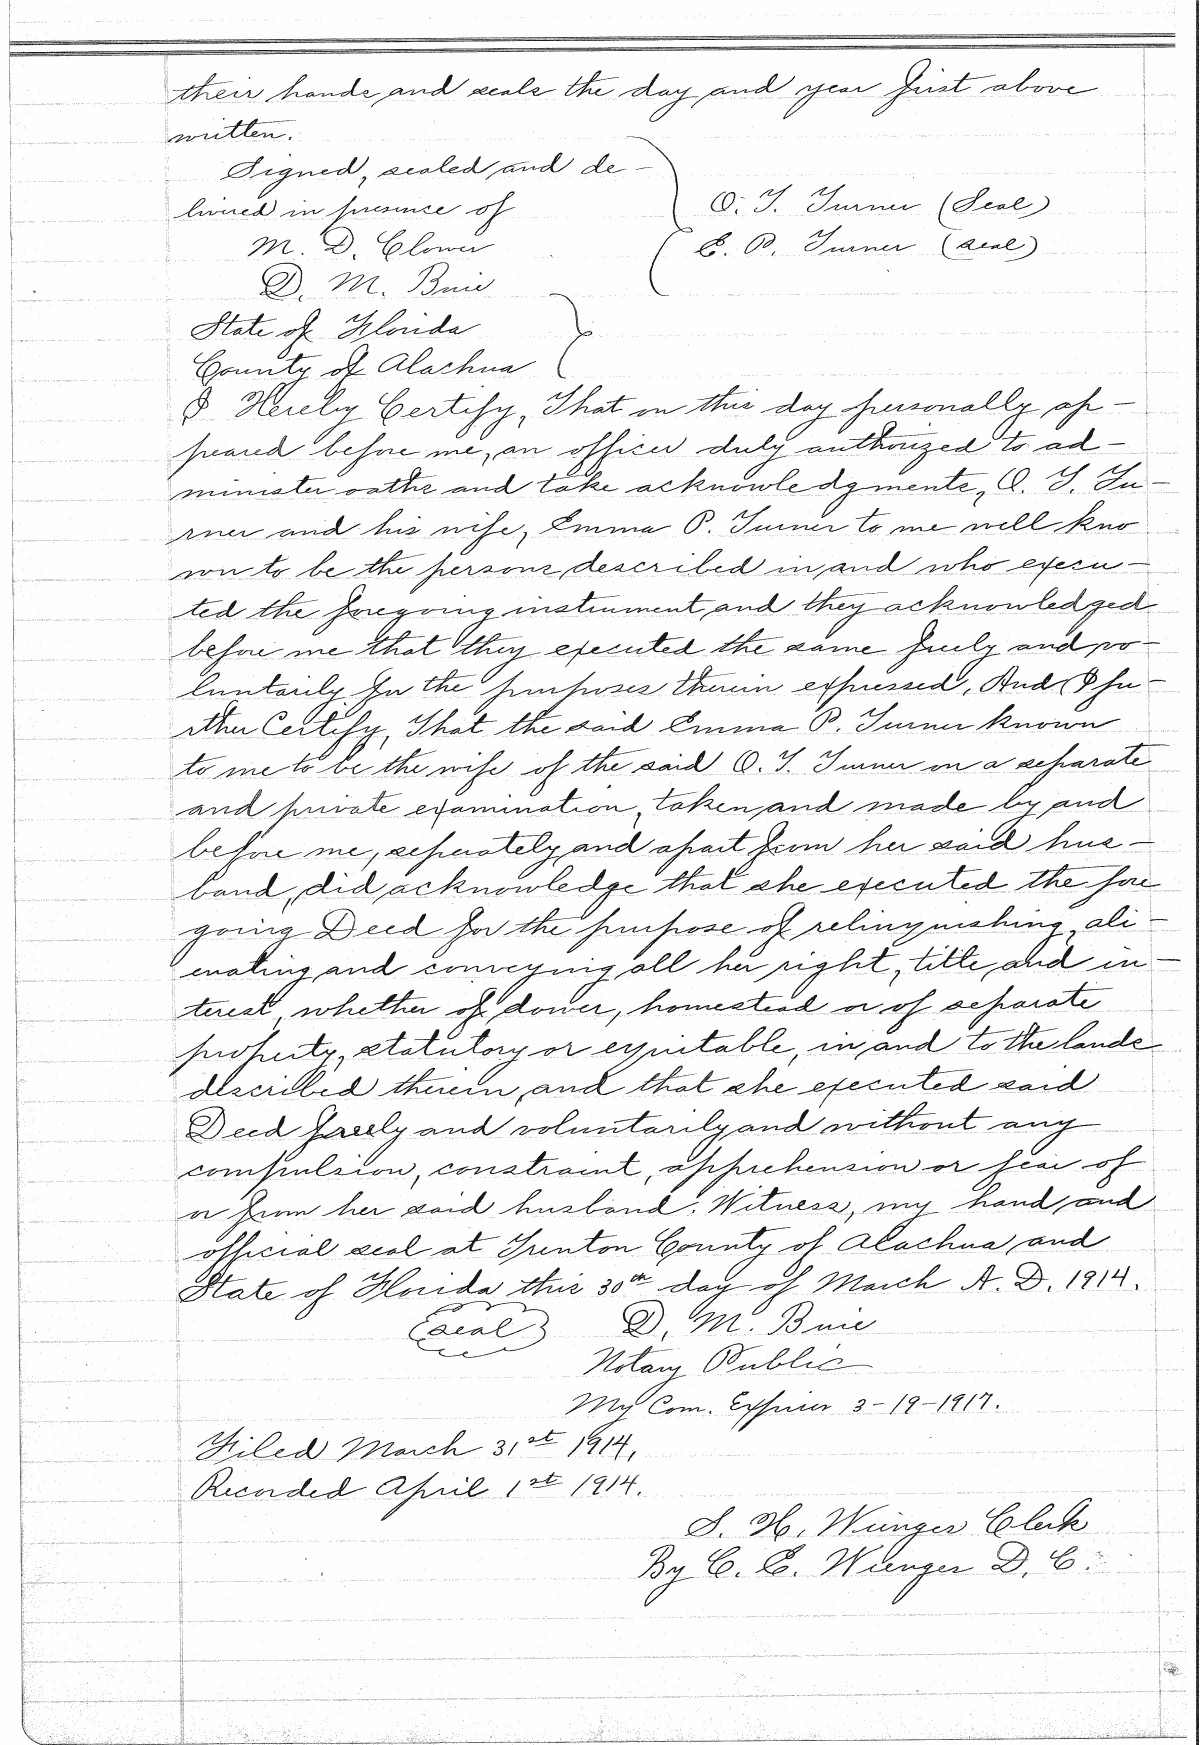 their hands and seals the day and year first above
written.
Signed, sealed and de-
livered in presence of
O. T. Turner (Seal)
M. D. Clower
E. P. Turner (seal)
D. M. Buie
State of Florida
County of Alachua
I Hereby Certify, That on this day personally ap-
peared before me, an officer duly authorized to ad-
minister oaths and take acknowledgments, O. T. Tu-
rner and his wife, Emma P. Turner to me well kno
wn to be the persons described in and who execu-
ted the foregoing instrument and they acknowledged
before me that they executed the same freely and vo-
luntarily for the purposes therein expressed, And I fu-
rther Certify, That the said Emma P. Turner known
to me to be the wife of the said O. T. Turner on a separate
and private examination, taken and made by and
before me, seperately and apart from her said hus-
band, did acknowledge that she executed the fore
going Deed for the purpose of relinquishing, ali-
enating and conveying all her right, title and in-
terest, whether of dower, homestead or of separate
property, statutory or equitable, in and to the lands
described therein, and that she executed said
Deed freely and voluntarily and without any
compulsion, constraint, apprehension or fear of
or from her said husband. Witness, my hand and
official seal at Trenton County of Alachua, and
State of Florida this 30th day of March A. D. 1914.
(seal) D. M. Buie
Notary Public
My Com. Expires 3-19-1917.
Filed March 31st 1914,
Recorded April 1st 1914.
S. H. Wienges Clerk
By C. E. Wienges D. C.